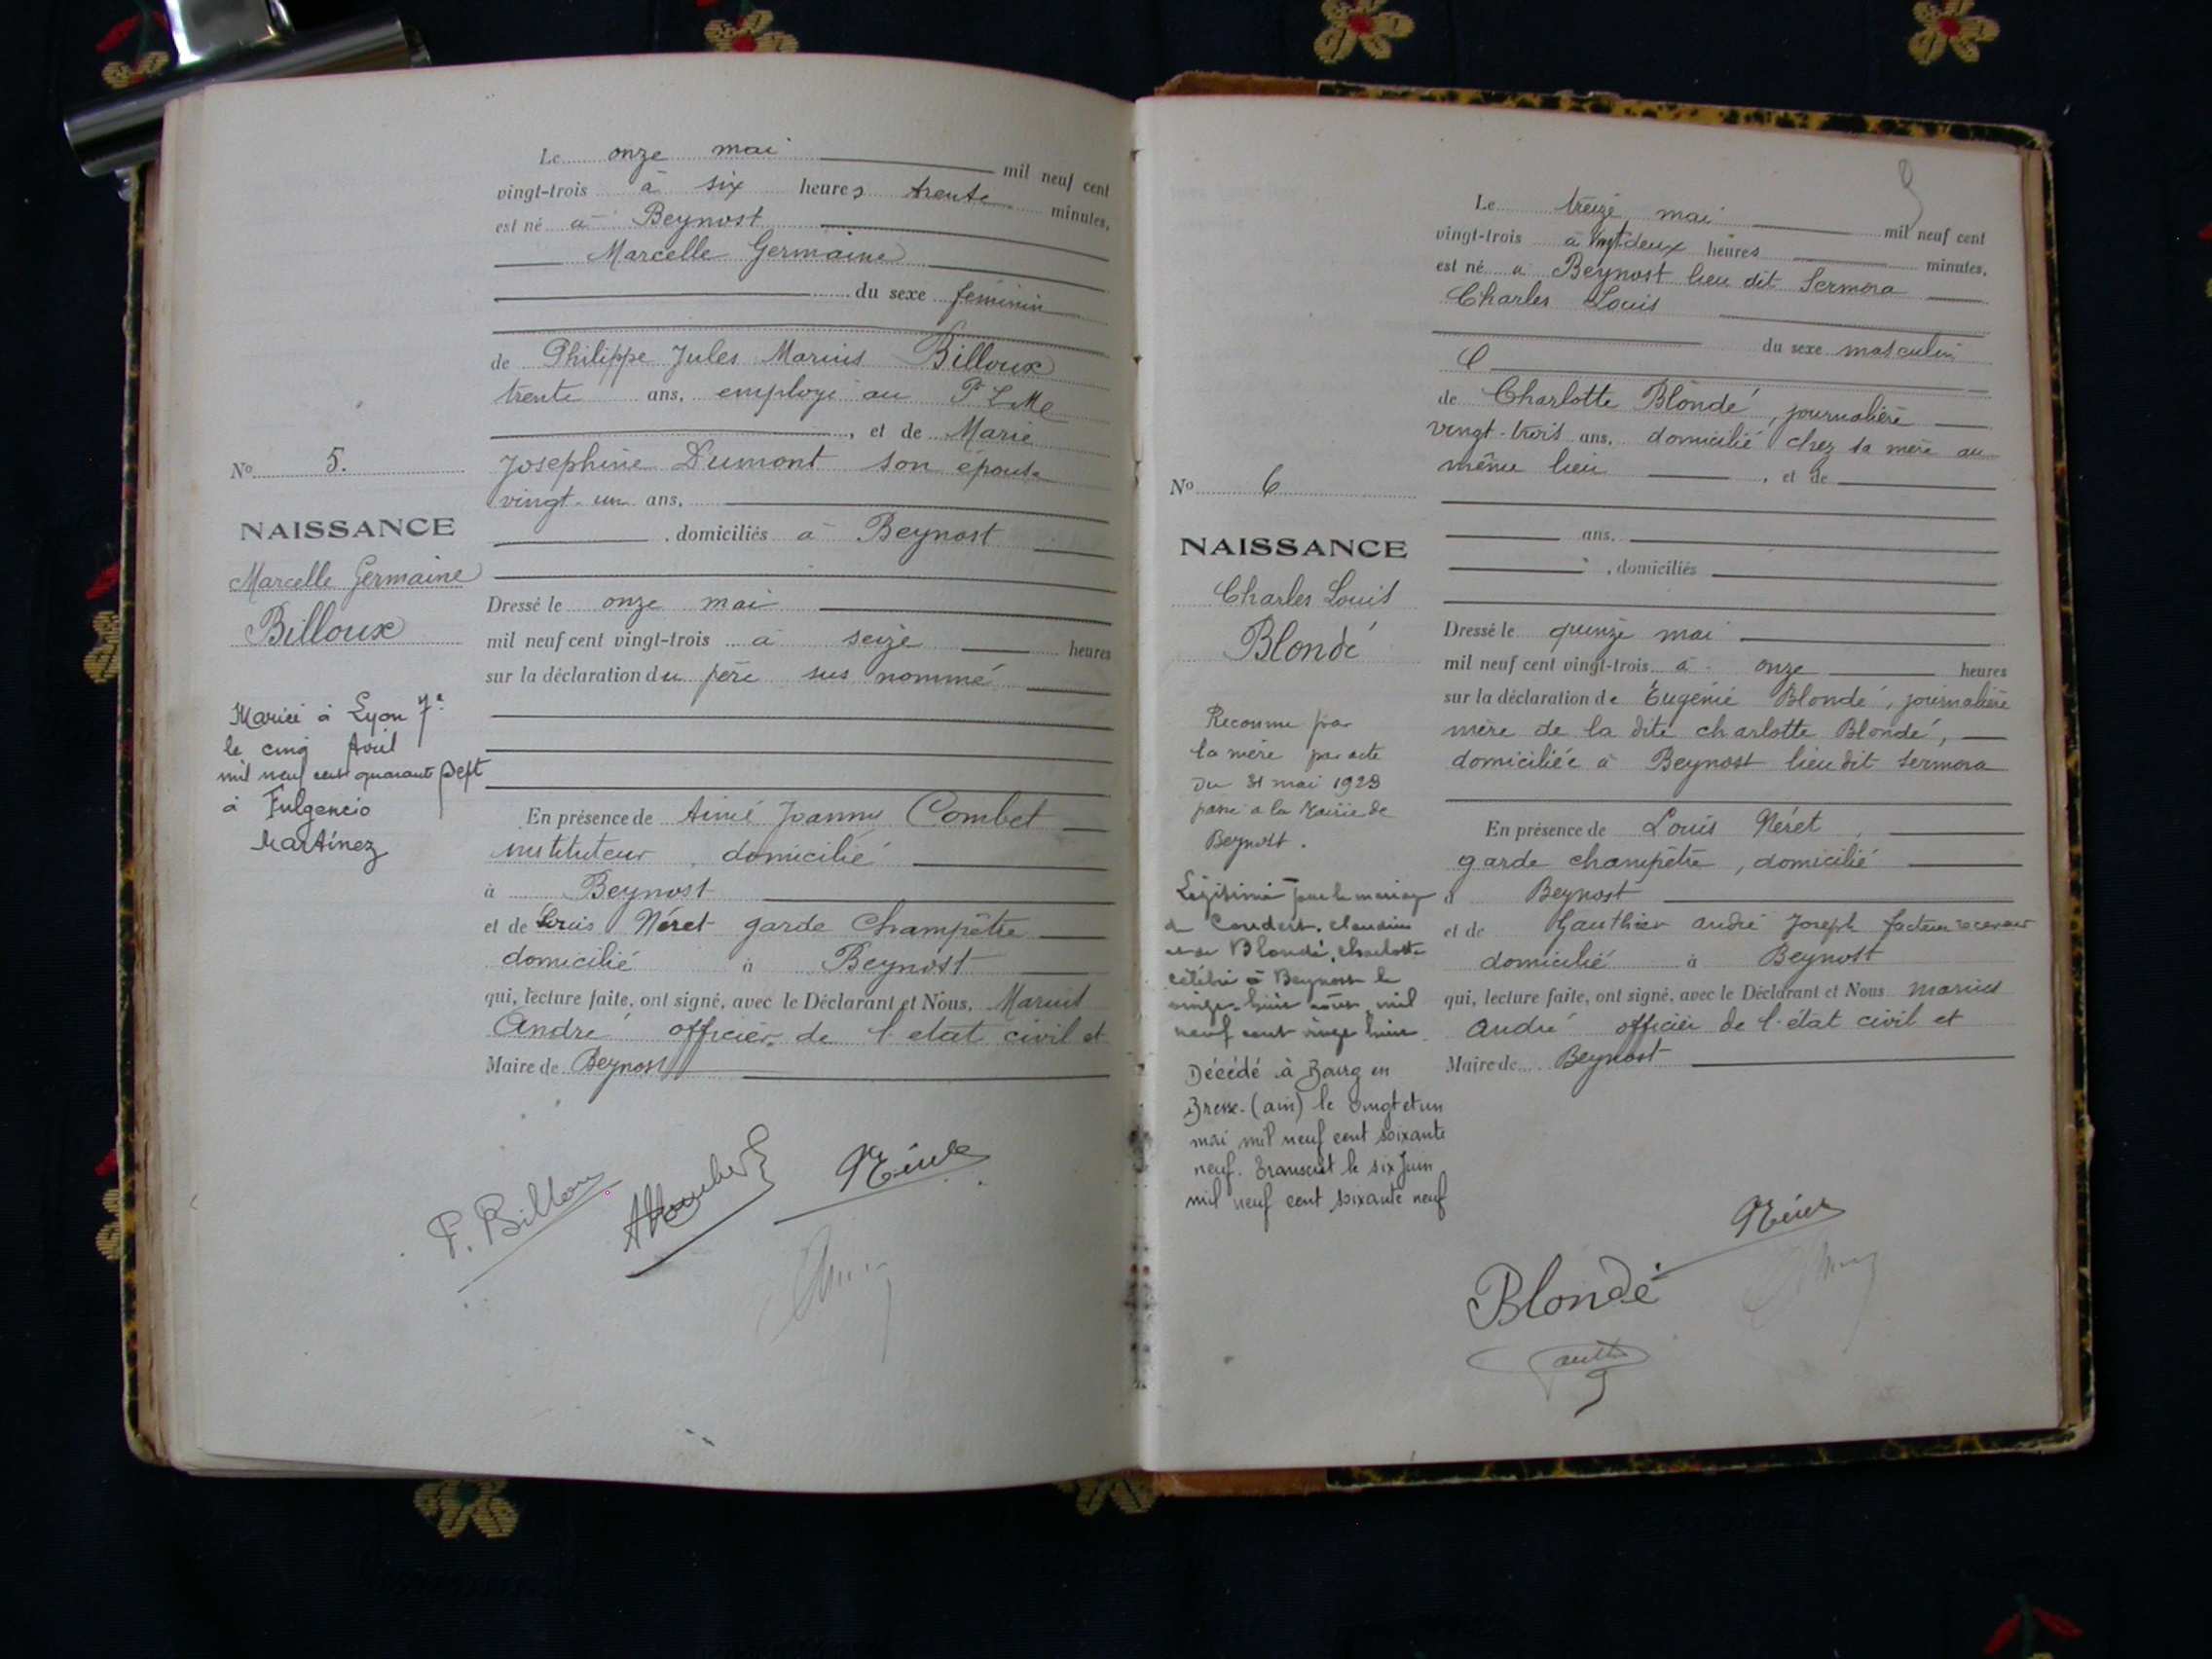 Le onze mai mil neuf cent
vingt-trois à six heures trente minutes,
est né à Beynost
Marcelle Germaine
du sexe féminin
de Philippe Jules Marius Billoux
trente ans, employé au P L M
, et de Marie
Josephine Dumont son épouse
vingt-un ans,
, domiciliés à Beynost
Dressé le onze mai
mil neuf cent vingt-trois à seize heures
sur la déclaration du père sus nommé
En présence de Aimé Joanny Combet
instituteur, domicilié
à Beynost
et de Louis Néret garde champêtre
domicilié à Beynost
qui, lecture faite, ont signé, avec le Déclarant et Nous, Marius
André officier de l'etat civil et
Maire de Beynost
No 5.
NAISSANCE
Marcelle Germaine
Billoux
Mariée à Lyon 7e
le cinq Avril
mil neuf cent quarante sept
à Fulgencio
Martinez
P. Billoux
Néret
9
Le treize mai mil neuf cent
vingt-trois à vingt deux heures minutes,
est né à Beynost lieu dit Sermora
Charles Louis
du sexe masculin
de Charlotte Blondé, journalière
vingt-trois ans, domicilié chez sa mère au
même lieu , et de
ans,
, domiciliés
Dressé le quinze mai
mil neuf cent vingt-trois à onze heures
sur la déclaration de Eugenie Blondé, journalière
mère de la dite charlotte Blondé,
domiciliée à Beynost lieu dit Sermora
En présence de Louis Néret,
garde champêtre, domicilié
à Beynost
et de Gauthier andré Joseph facteur receveur
domicilié à Beynost
qui, lecture faite, ont signé, avec le Déclarant et Nous marius
andré officier de l'état civil et
Maire de Beynost
No 6
NAISSANCE
Charles Louis
Blondé
Reconnu par
la mère par acte
du 31 mai 1923
passé a la Mairie de
Beynost.
Légitimé par le mariage
de Coudert, claudius
et de Blondé, charlotte
célébré à Beynost le
vingt-huit mil
neuf cent vingt huit.
Décédé à Bourg en
Bresse (ain) le vingt et un
mai mil neuf cent soixante
neuf. Transcrit le six Juin
mil neuf cent soixante neuf
Néret
Blondé